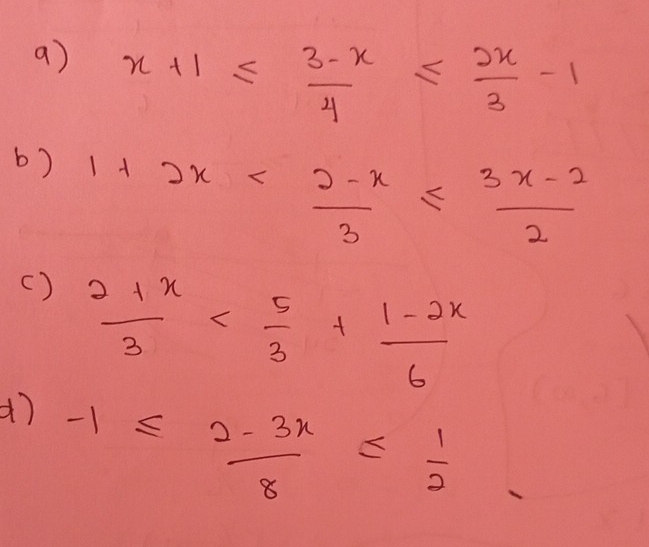 a) x + 1 ≤ (3 - x)/4 ≤ 2x/3 - 1
b) 1 + 2x < (2 - x)/3 ≤ (3x - 2)/2
c) (2 + x)/3 < 5/3 + (1 - 2x)/6
d) -1 ≤ (2 - 3x)/8 ≤ 1/2